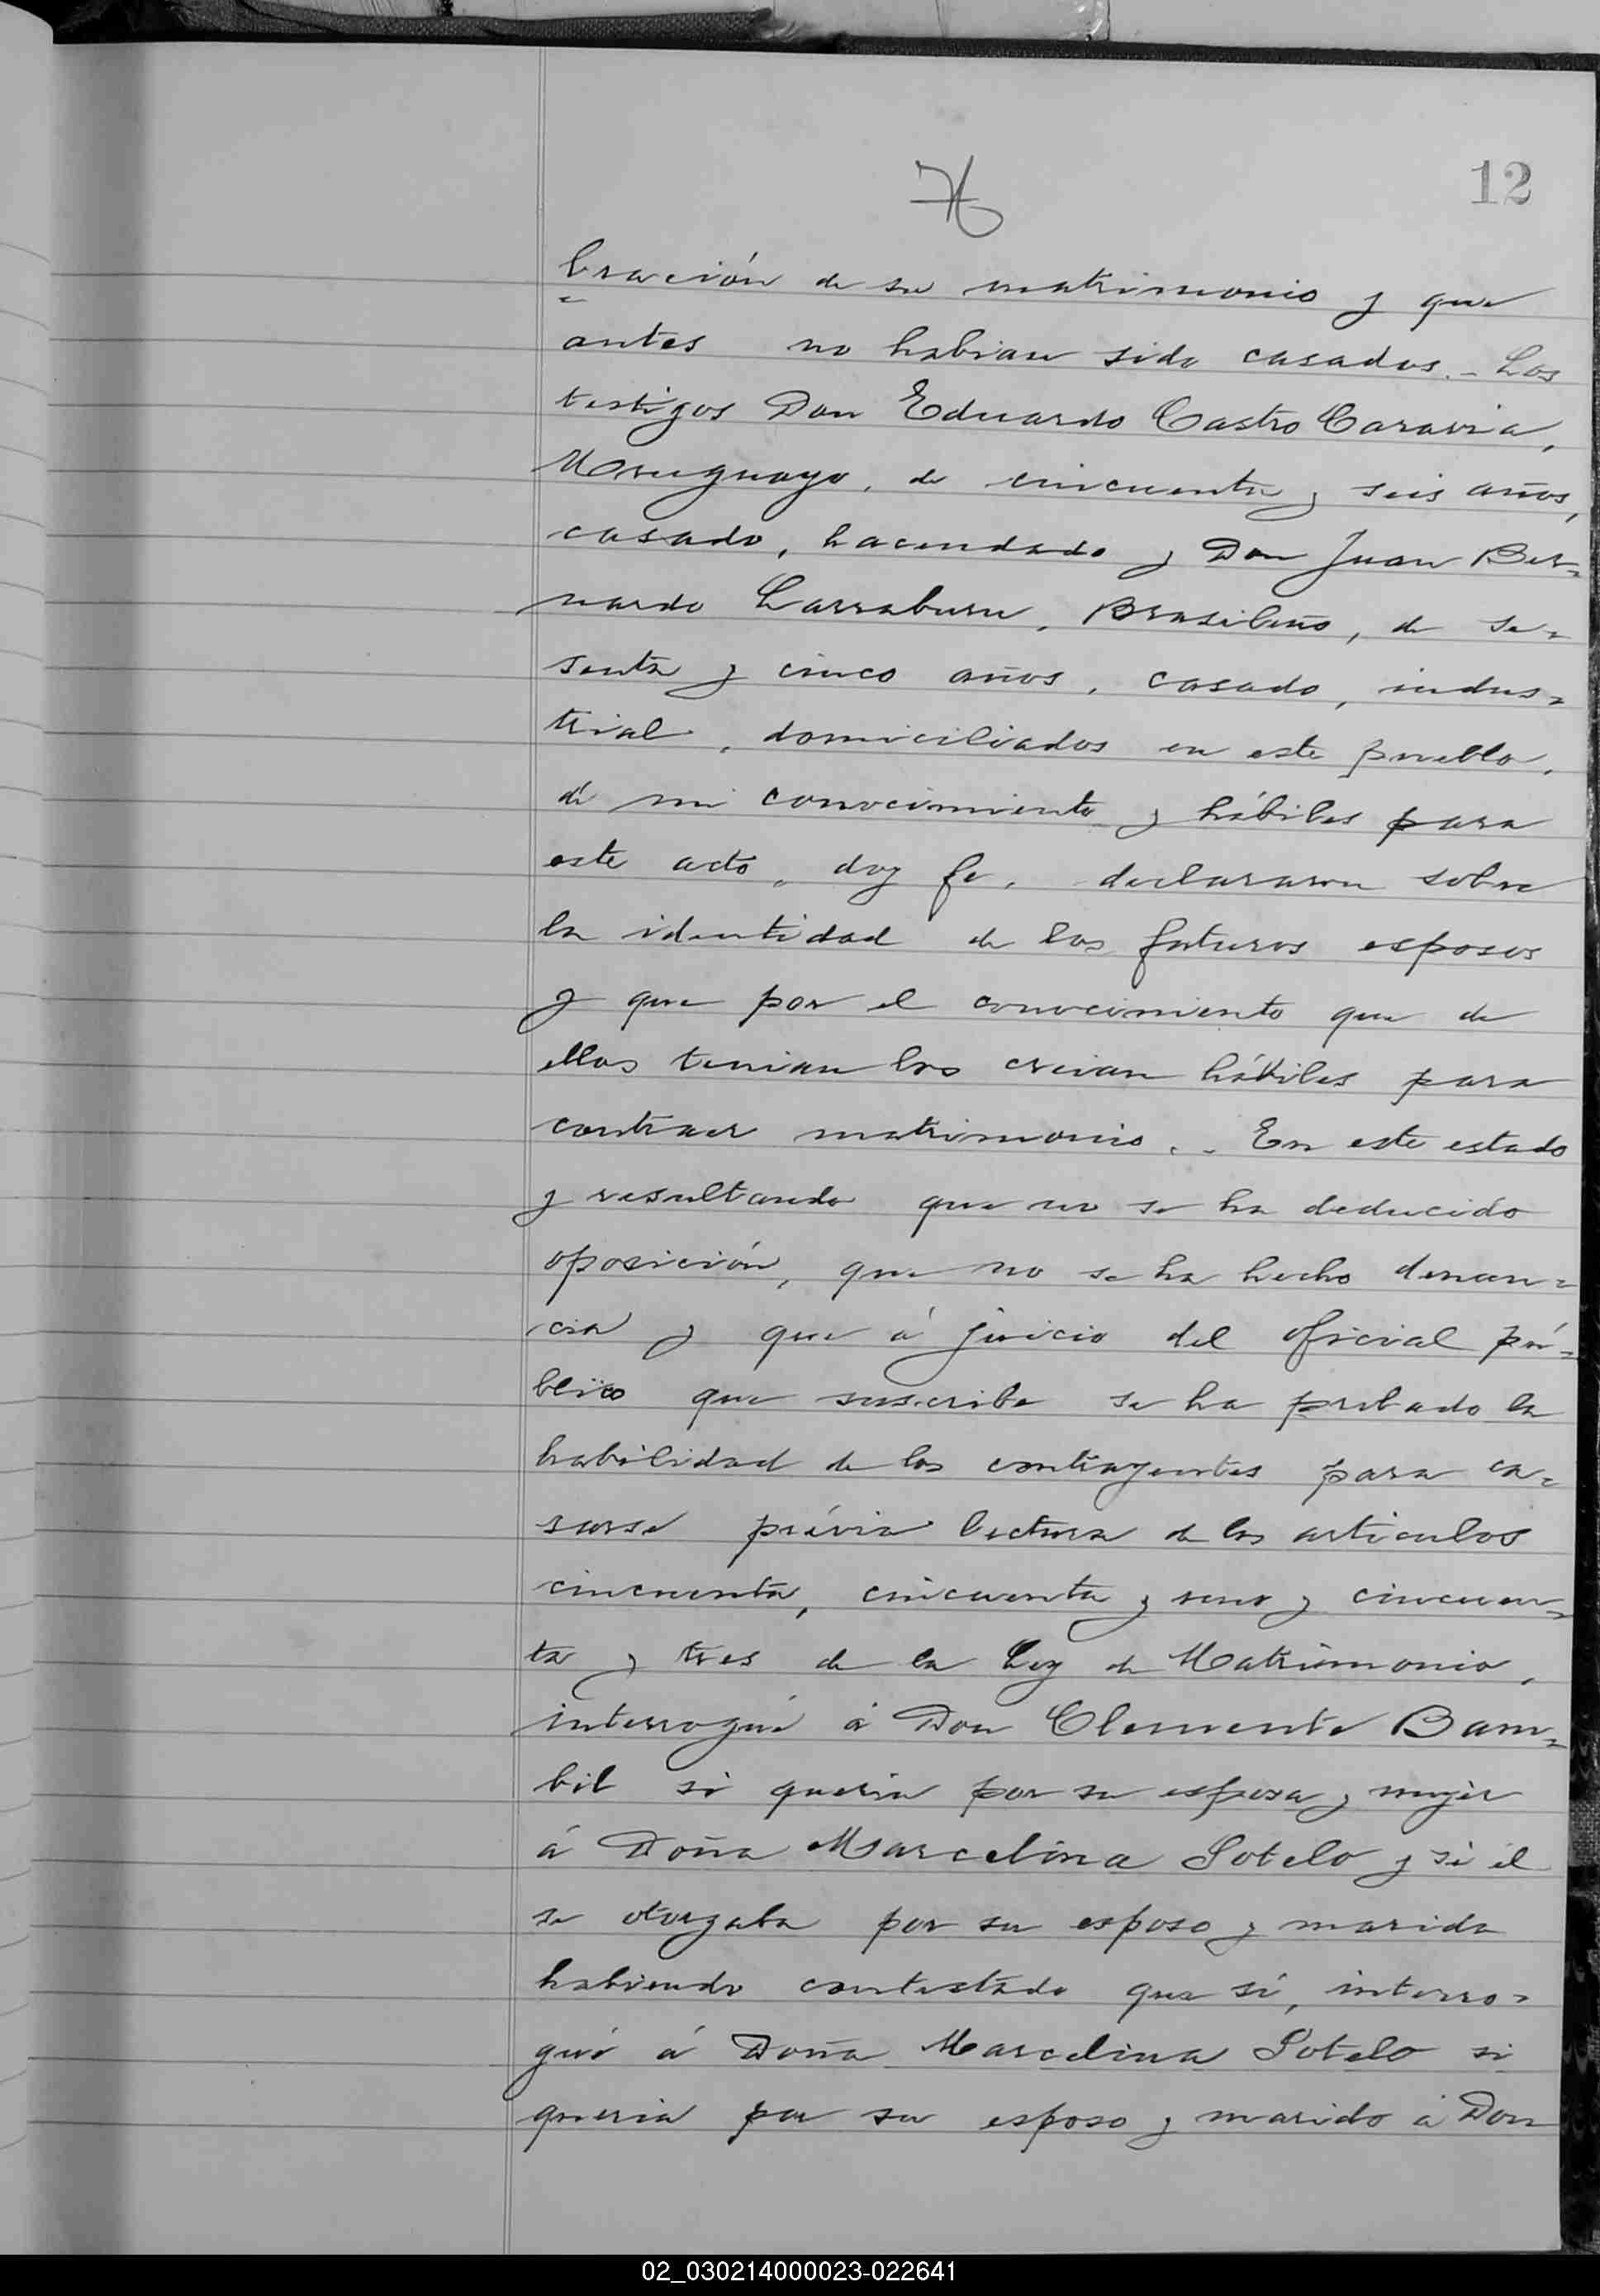 12
bración de su matrimonio y que
antes no habian sido casados. - Los
testigos Don Eduardo Castro Caravia,
Uruguayo, de cincuenta y seis años,
casado, hacendado y Don Juan Ber=
nardo Larraburu, Brasileño, de se=
senta y cinco años, casado, indus=
trial, domiciliados en este pueblo,
de mi conocimiento y hábiles para
este acto, doy fe, declararon sobre
la identidad de los futuros esposos
y que por el conocimiento que de
ellos tenian los creian hábiles para
contraer matrimonio. - En este estado
y resultando que no se ha deducido
oposición, que no se ha hecho denun=
cia y que á juicio del oficial pú=
blico que suscribe se ha probado la
habilidad de los contrayentes para ca=
sarse prévia lectura de los articulos
cincuenta, cincuenta y uno y cincuen=
ta y tres de la Ley de Matrimonio,
interrogué á Don Clemente Bam=
bil si queria por su esposa y mujer
á Doña Marcelina Sotelo y si él
se otorgaba por su esposo y marido
habiendo contestado que sí, interro=
gué á Doña Marcelina Sotelo si
queria por su esposo y marido á Don
02_030214000023-022641